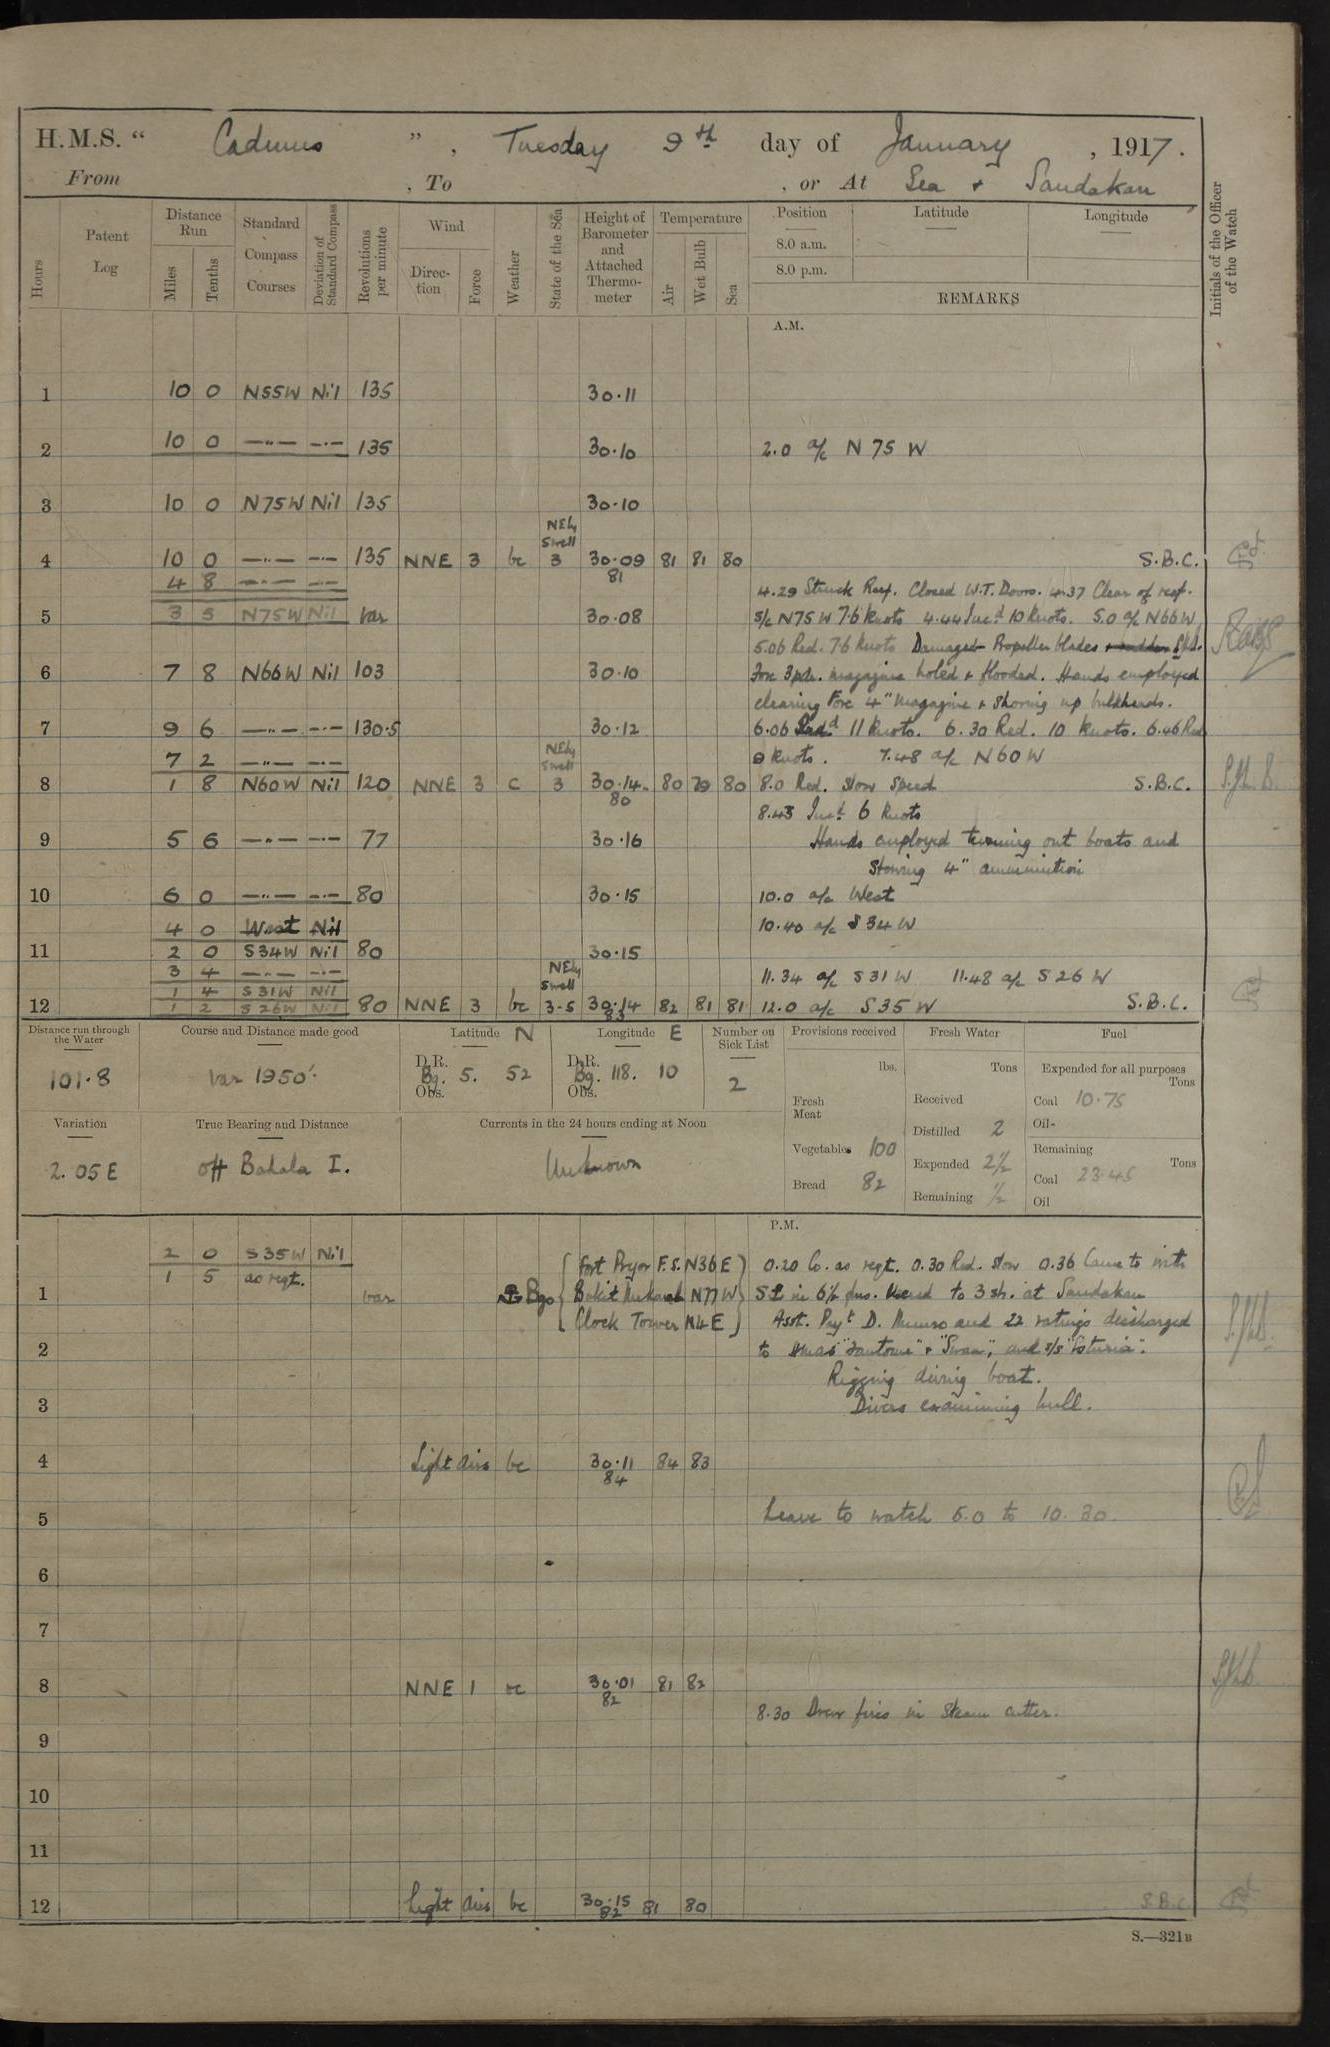 H.M.S. " Cadmus ", Tuesday 9th day of January, 1917.
From , To , or At Sea & Sandakan
Hours
Patent Log
Distance Run
Miles
Tenths
Standard Compass Courses
Deviation of Standard Compass
Revolutions per minute
Wind
Direction
Force
Weather
State of the Sea
Height of Barometer and Attached Thermometer
Temperature
Air
Wet Bulb
Sea
Position Latitude Longitude
8.0 a.m.
8.0 p.m.
REMARKS
Initials of the Officer of the Watch
A.M.
1 10 0 N55W Nil 135 30.11
2 10 0 —"— —"— 135 30.10 2.0 a/c N 75 W
3 10 0 N75W Nil 135 30.10
NEly Swell
4 10 0 —"— —"— 135 NNE 3 bc 3 30.09 81 81 80 S.B.C.
81
4 8 —"— —"— 4.29 Struck Reef. Closed W.T. Doors. 4.37 Clear of reef.
5 3 5 N75W Nil var 30.08 S/c N75W 7.6 knots 4.44 Incd 10 knots. 5.0 a/c N66W
5.06 Red. 7.6 knots Damaged Propeller blades & rudder
6 7 8 N66W Nil 103 30.10 Fore 3pdr. magazine holed & flooded. Hands employed
clearing Fore 4" Magazine & shoring up bulkheads.
7 9 6 —"— —"— 130.5 30.12 6.06 11 knots. 6.30 Red. 10 knots. 6.46 Red
7 2 —"— —"— 9 knots. 7.48 a/c N60W
NEly Swell
8 1 8 N60W Nil 120 NNE 3 c 3 30.14 80 79 80 8.0 Red. slow speed S.B.C.
80
8.43 Incd. 6 knots
9 5 6 —"— —"— 77 30.16 Hands employed turning out boats and
Stowing 4" ammunition
10 6 0 —"— —"— 80 30.15 10.0 a/c West
4 0 West Nil 10.40 a/c S34W
11 2 0 S34W Nil 80 30.15
3 4 —"— —"— 11.34 a/c S31W 11.48 a/c S26W
1 4 S31W Nil NEly Swell
12 1 2 S26W Nil 80 NNE 3 bc 3-5 30.14 82 81 81 12.0 a/c S35W S.B.C.
83
Distance run through the Water
101.8
Course and Distance made good
Var 1950'.
Latitude N
D.R.
Bg. 5. 52
Obs.
Longitude E
D.R.
Bg. 118. 10
Obs.
Number on Sick List
2
Provisions received
lbs.
Fresh Meat
Vegetables 100
Bread 82
Fresh Water
Tons
Received
Distilled 2
Expended 2½
Remaining ½
Fuel
Expended for all purposes
Tons
Coal 10.75
Oil-
Remaining
Tons
Coal 23.45
Oil
Variation
2.05E
True Bearing and Distance
off Bahala I.
Currents in the 24 hours ending at Noon
Unknown
P.M.
2 0 S35W Nil Fort Pryor F.S. N36E 0.20 Co. as reqt. 0.30 Red. slow 0.36 Came to with
1 1 5 as reqt. var Bgs Bukit N77W in 6½ fms. Veered to 3 sh. at Sandakan
Clock Tower N4E Asst. Payr D. Munro and 22 ratings discharged
2 to HMAS "Fantome" & "Swan", and S/S
Rigging diving boat.
3 Divers examining hull.
4 Light airs bc 30.11 84 83
84
5 Leave to watch 5.0 to 10.30.
6
7
8 NNE 1 bc 30.01 81 82
82
8.30 Drew fires in steam cutter.
9
10
11
12 Light airs bc 30.15 81 80 S.B.C.
82
S.—321B